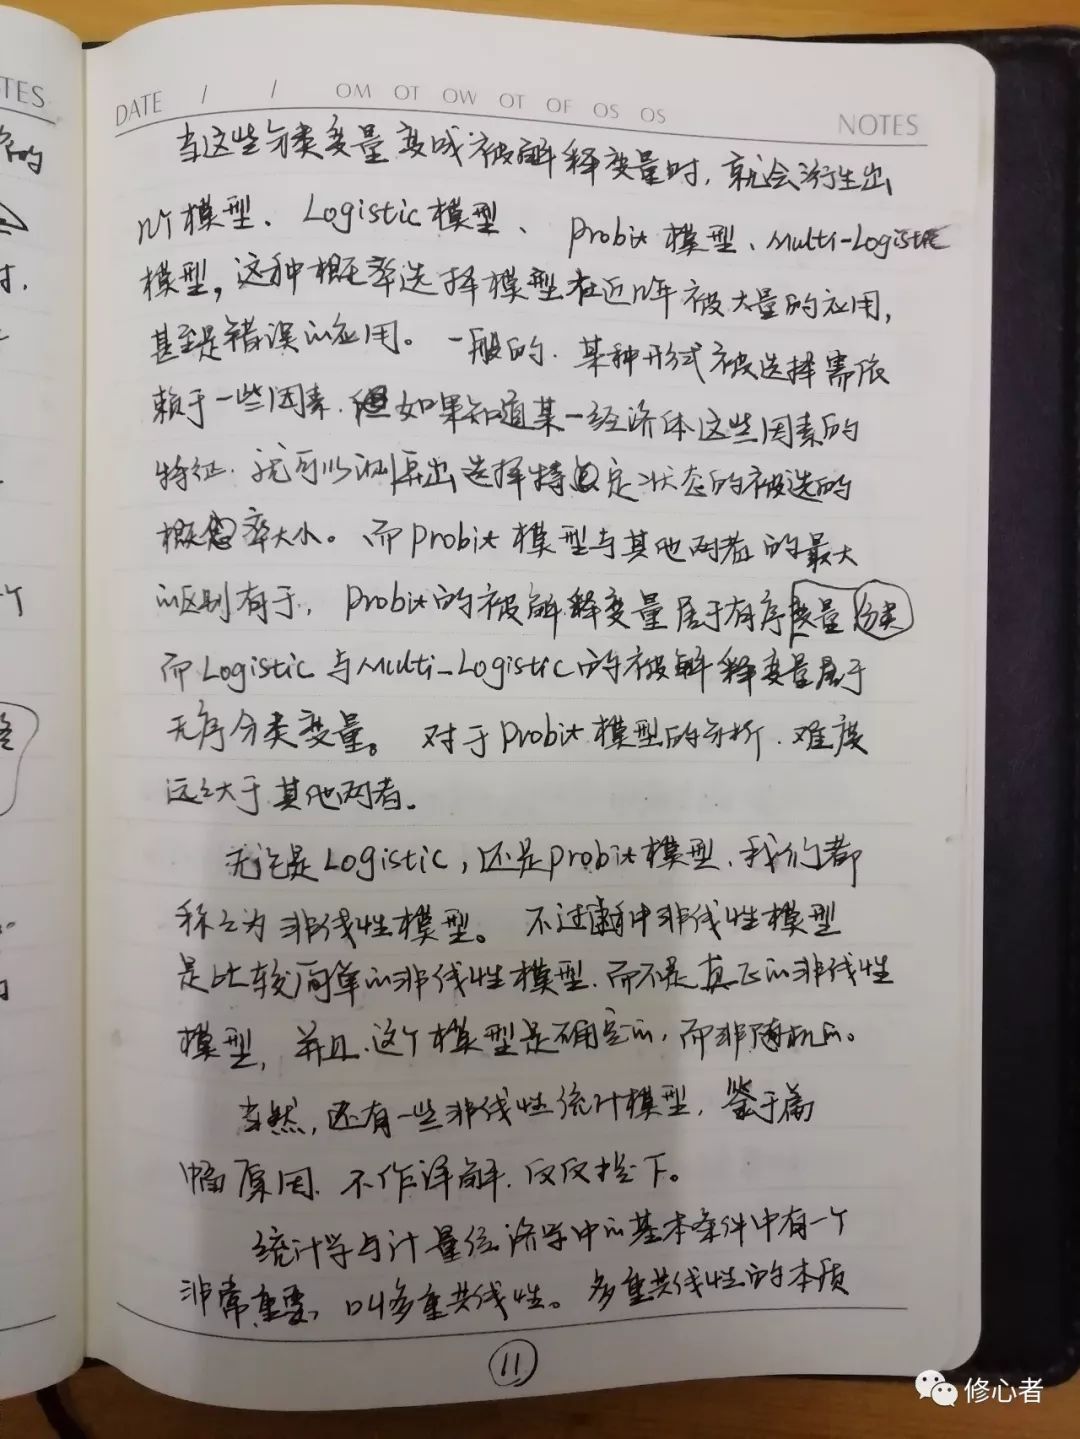 DATE / / OM OT OW OT OF OS OS NOTES
当这些分类变量变成被解释变量时,就会衍生出
几个模型、Logistic模型、Probit模型、Multi-Logistic
模型,这种概率选择模型在近几年被大量的应用,
甚至是错误的应用。一般的.某种形式被选择需依
赖于一些因素.但如果知道某一经济体这些因素的
特征.就可以测算出选择特定状态的被选的
概率大小。而Probit模型与其他两者的最大
的区别有于,Probit的被解释变量属于有序变量分类
而Logistic与Multi-Logistic的被解释变量属于
无序分类变量。对于Probit模型的分析.难度
远大于其他两者.
无论是Logistic,还是Probit模型.我们都
称之为非线性模型。不过这种非线性模型
是比较简单的非线性模型.而不是真正的非线性
模型,并且.这个模型是确定的,而非随机的。
当然,还有一些非线性统计模型,鉴于篇
幅原因.不作详解.仅仅提下。
统计学与计量经济学中的基本条件中有一个
非常重要,叫多重共线性。多重共线性的本质
11
TES
修心者